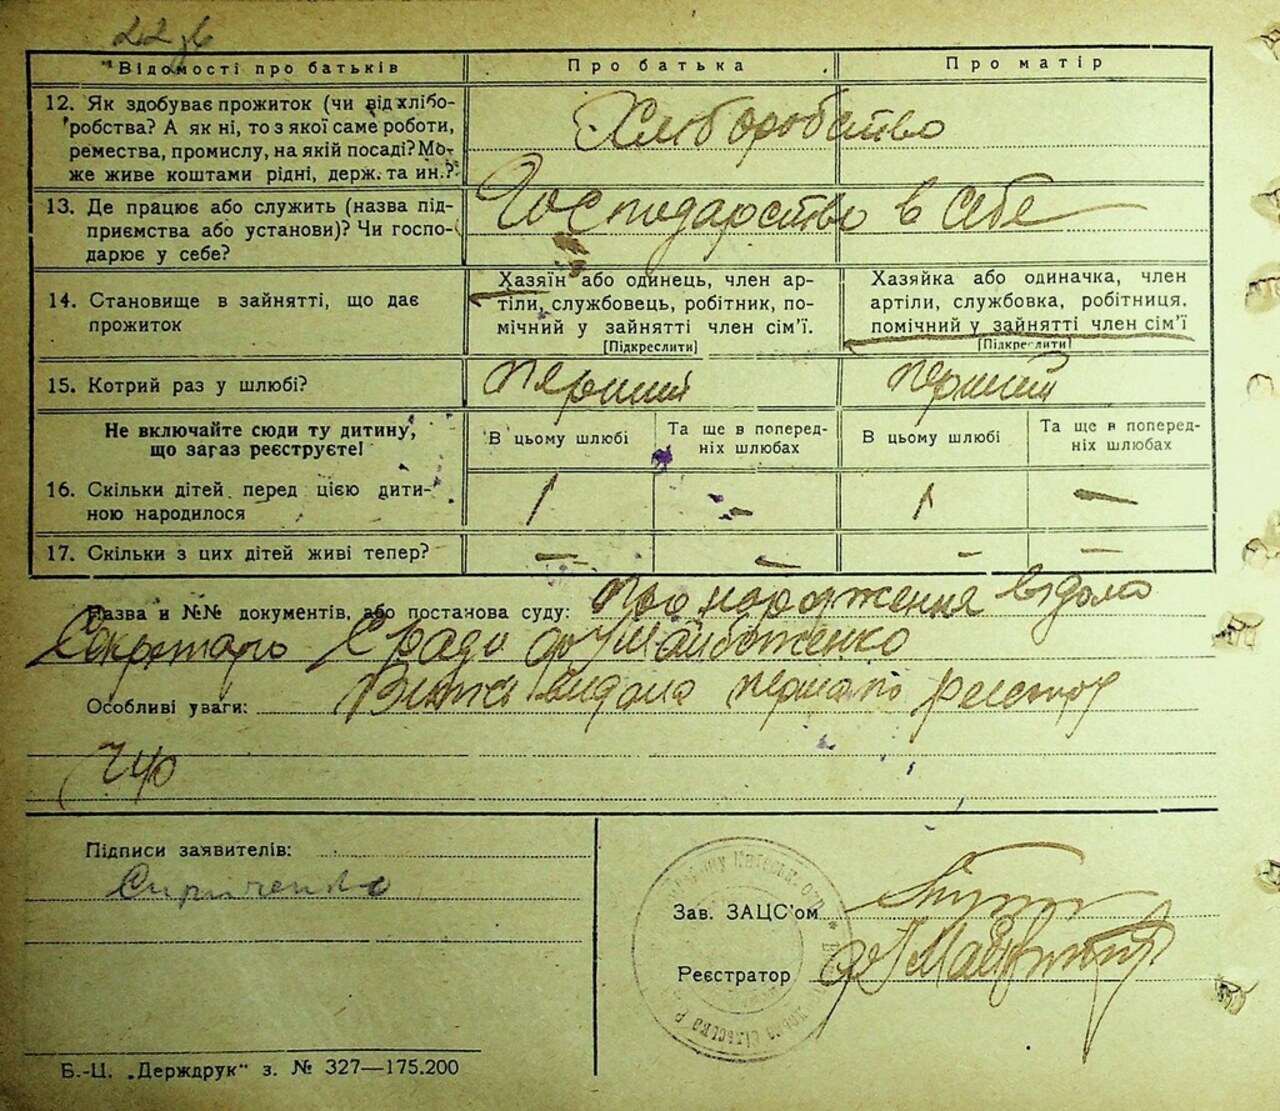 22 зв
Відомості про батьків
Про батька
Про матір
12. Як здобуває прожиток (чи від хлібо-
робства? А як ні, то з якої саме роботи,
ремества, промислу, на якій посаді? Мо-
же живе коштами рідні, держ. та ин.?
Хліборобство
13. Де працює або служить (назва під-
приємства або установи)? Чи госпо-
дарює у себе?
Господарство в себе
14. Становище в зайнятті, що дає
прожиток
Хазяїн або одинець, член ар-
тіли, службовець, робітник, по-
мічний у зайнятті член сім'ї.
[Підкреслити]
Хазяйка або одиначка, член
артіли, службовка, робітниця.
помічний у зайнятті член сім'ї
[Підкреслити]
15. Котрий раз у шлюбі?
перший
перший
Не включайте сюди ту дитину,
що загаз реєструєте!
В цьому шлюбі
Та ще в поперед-
ніх шлюбах
В цьому шлюбі
Та ще в поперед-
ніх шлюбах
16. Скільки дітей перед цією дити-
ною народилося
1
—
1
—
17. Скільки з цих дітей живі тепер?
—
—
—
—
Назва и №№ документів, або постанова суду: Про народження відомо
Секретарь С ради
Особливі уваги: видана
Підписи заявителів:
Зав. ЗАЦС'ом
Реєстратор
Б.-Ц. „Держдрук" з. № 327—175.200